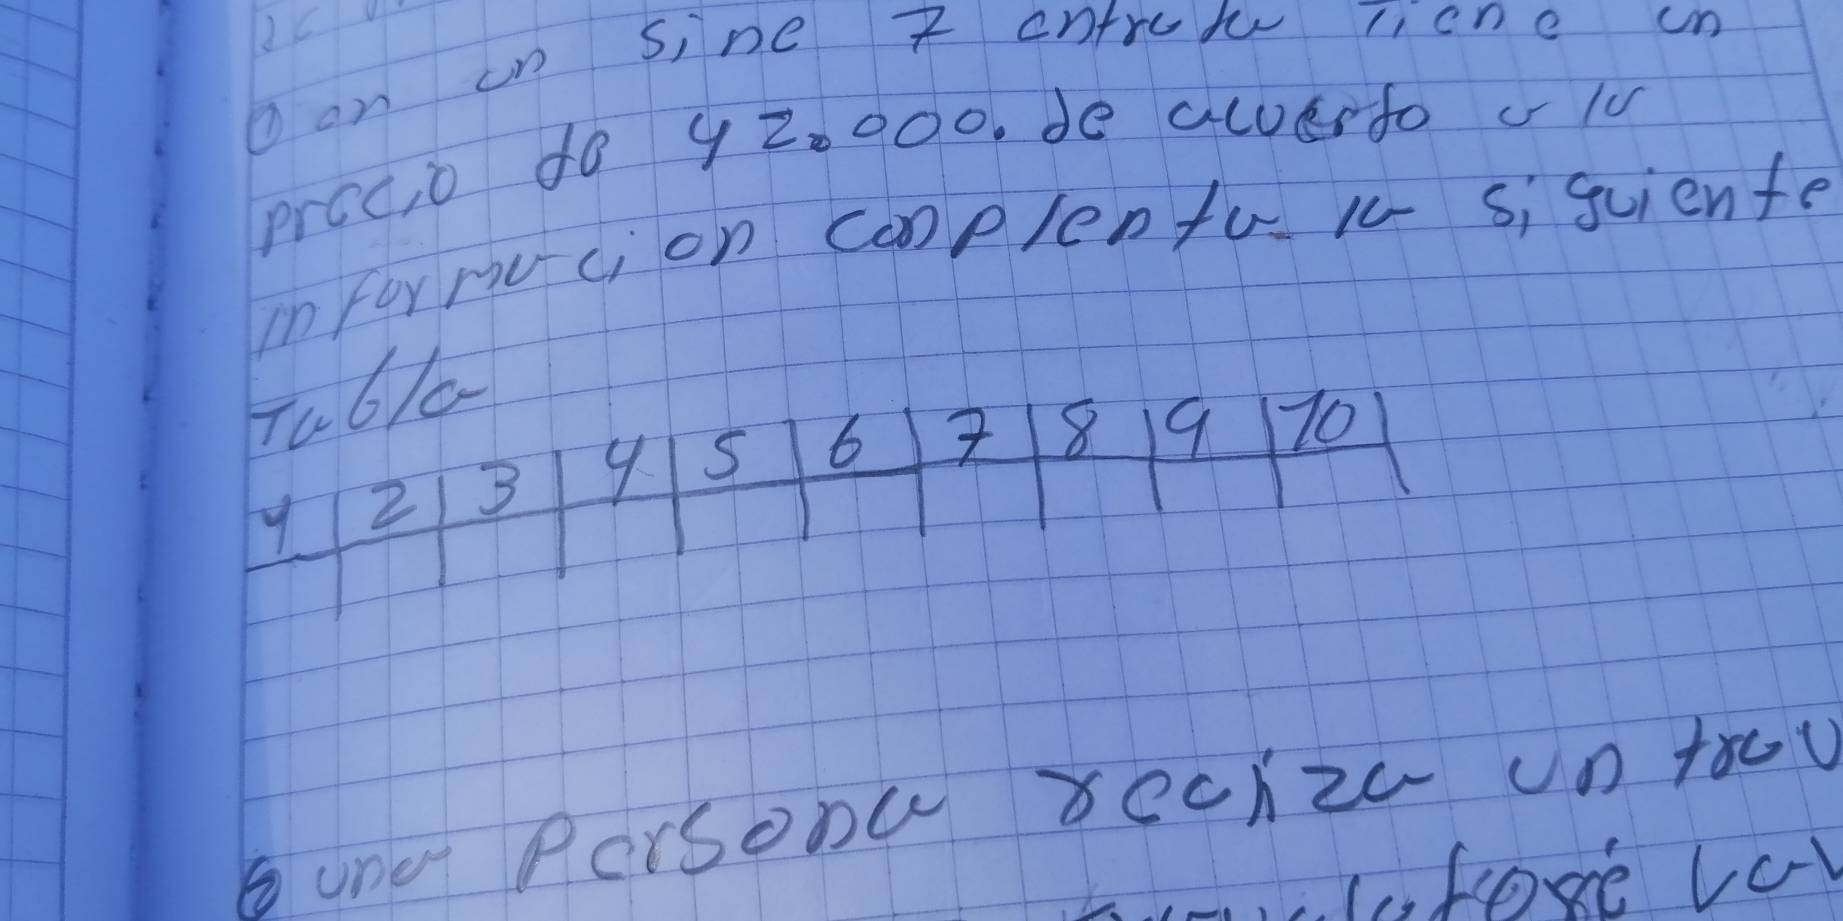 ① on un sine 7 entrata Tiene un
precio de 42.000. de acuerdo a la
informacion conplenta la siguiente
Tabla
1 2 3 4 5 6 7 8 9 10
una Persona realiza un trav